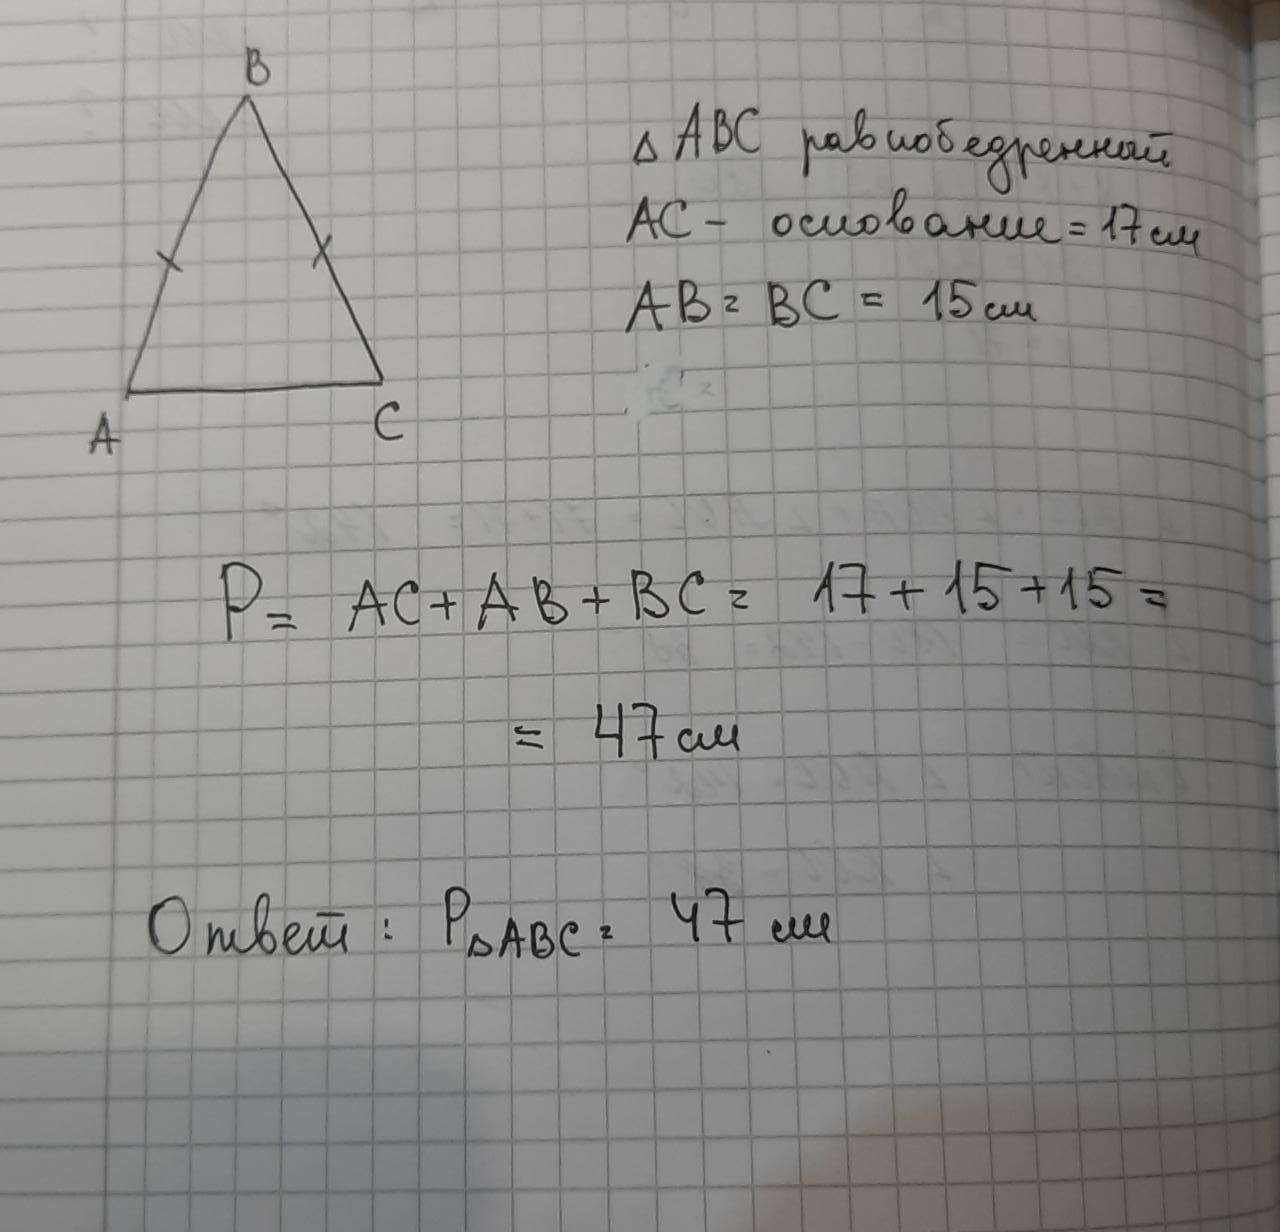 B
△ ABC равнобедренный
AC - основание = 17 см
AB = BC = 15 см
A
C
P = AC + AB + BC = 17 + 15 + 15 =
= 47 см
Ответ : P△ABC = 47 см